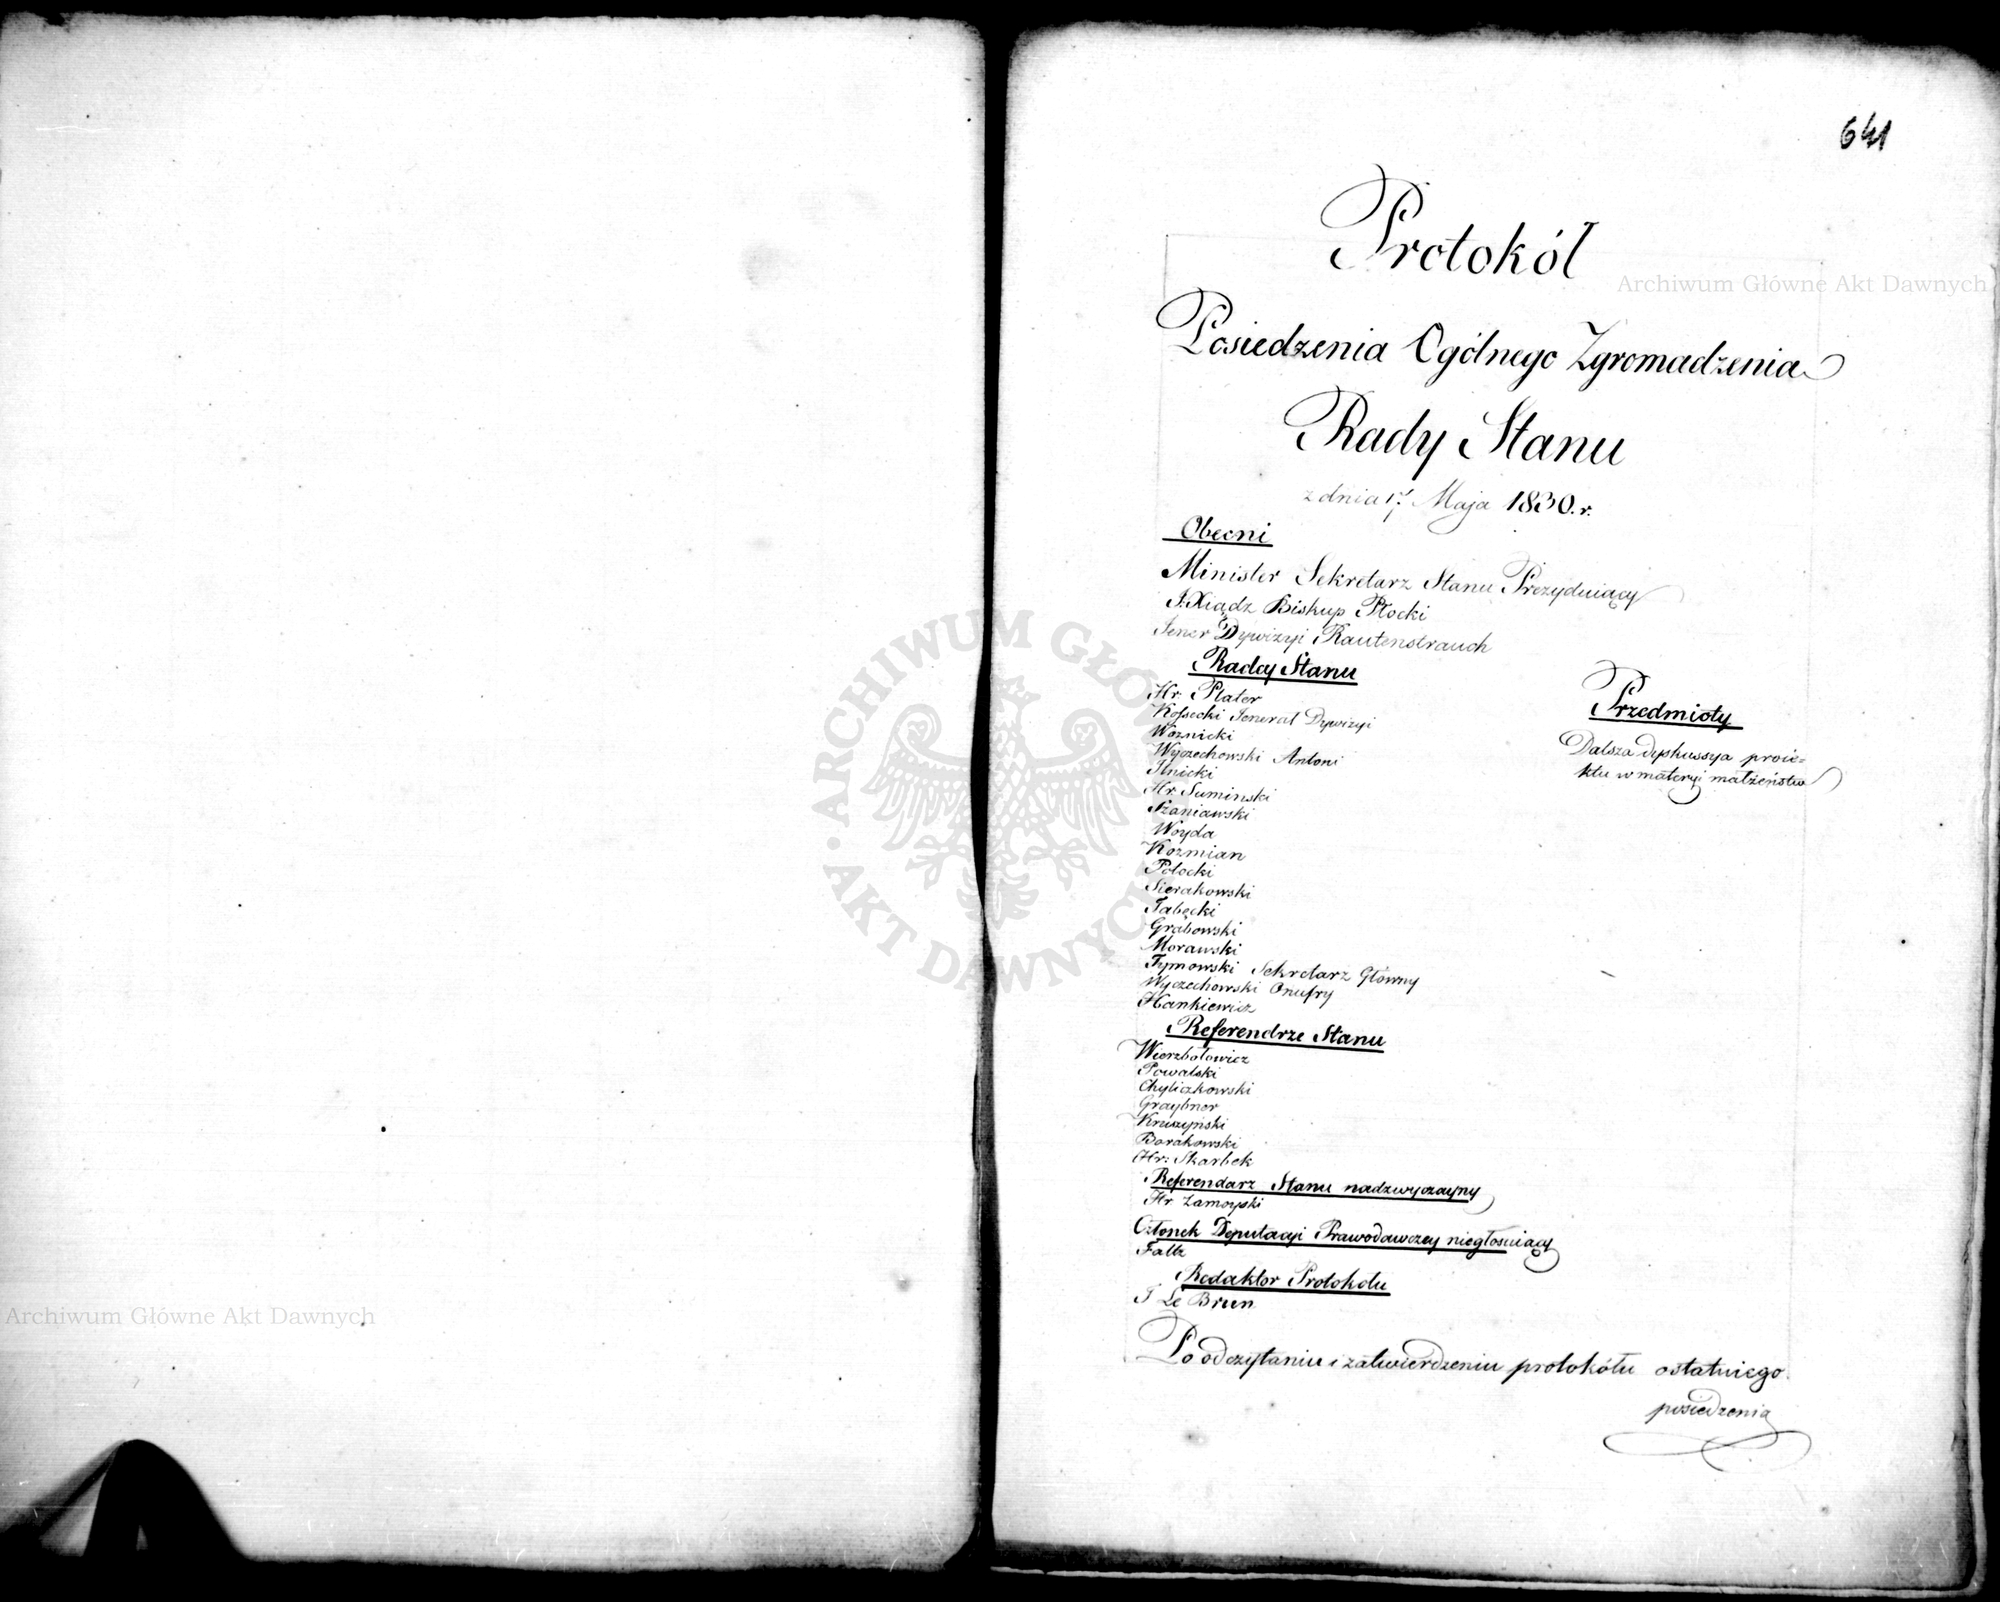 641
Protokół
Posiedzenia Ogólnego Zgromadzenia
Rady Stanu
z dnia 17 Maja 1830. r.
Obecni
Minister Sekretarz Stanu Prezyduiący
J. Xiądz Biskup Płocki
Jener Dywizyi Rautenstrauch
Radcy Stanu
Hr. Plater
Kossecki Jenerał Dywizyi
Woznicki
Wyczechowski Antoni
Ilnicki
Hr. Suminski
Szaniawski
Woyda
Kozmian
Potocki
Sierakowski
Tabęcki
Grabowski
Morawski
Tymowski Sekretarz Główny
Wyczechowski Onufry
Hankiewicz
Przedmioty
Dalsza dyskussya proie-
ktu w materyi małżeństw
Referendrze Stanu
Wierzbołowicz
Powalski
Chyliczkowski
Graybner
Kruszyński
Borakowski
Hr: Skarbek
Referendarz Stanu nadzwyczayny
Hr. Zamoyski
Członek Deputacyi Prawodawczey niegłosuiący
Faltz
Redaktor Protokołu
J Le Brun
Po odczytaniu i zatwierdzeniu protokółu ostatniego
posiedzenia
Archiwum Główne Akt Dawnych
Archiwum Główne Akt Dawnych
ARCHIWUM GŁÓWNE AKT DAWNYCH